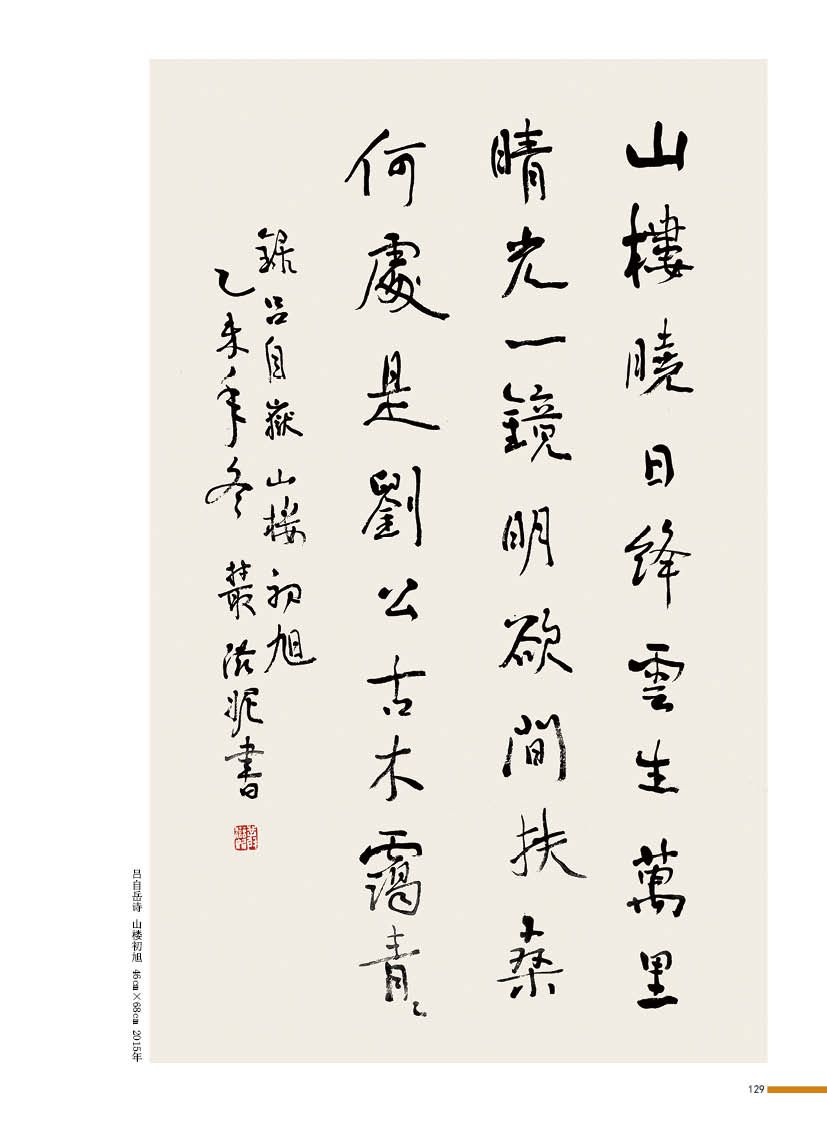 山樓曉日絳雲生萬里
晴光一鏡明欲問扶桑
何處是劉公古木靄青〻
錄呂自嶽山樓初旭
乙未年冬叢滋昵書
吕自岳诗 山楼初旭 46cm×68cm 2015年
129